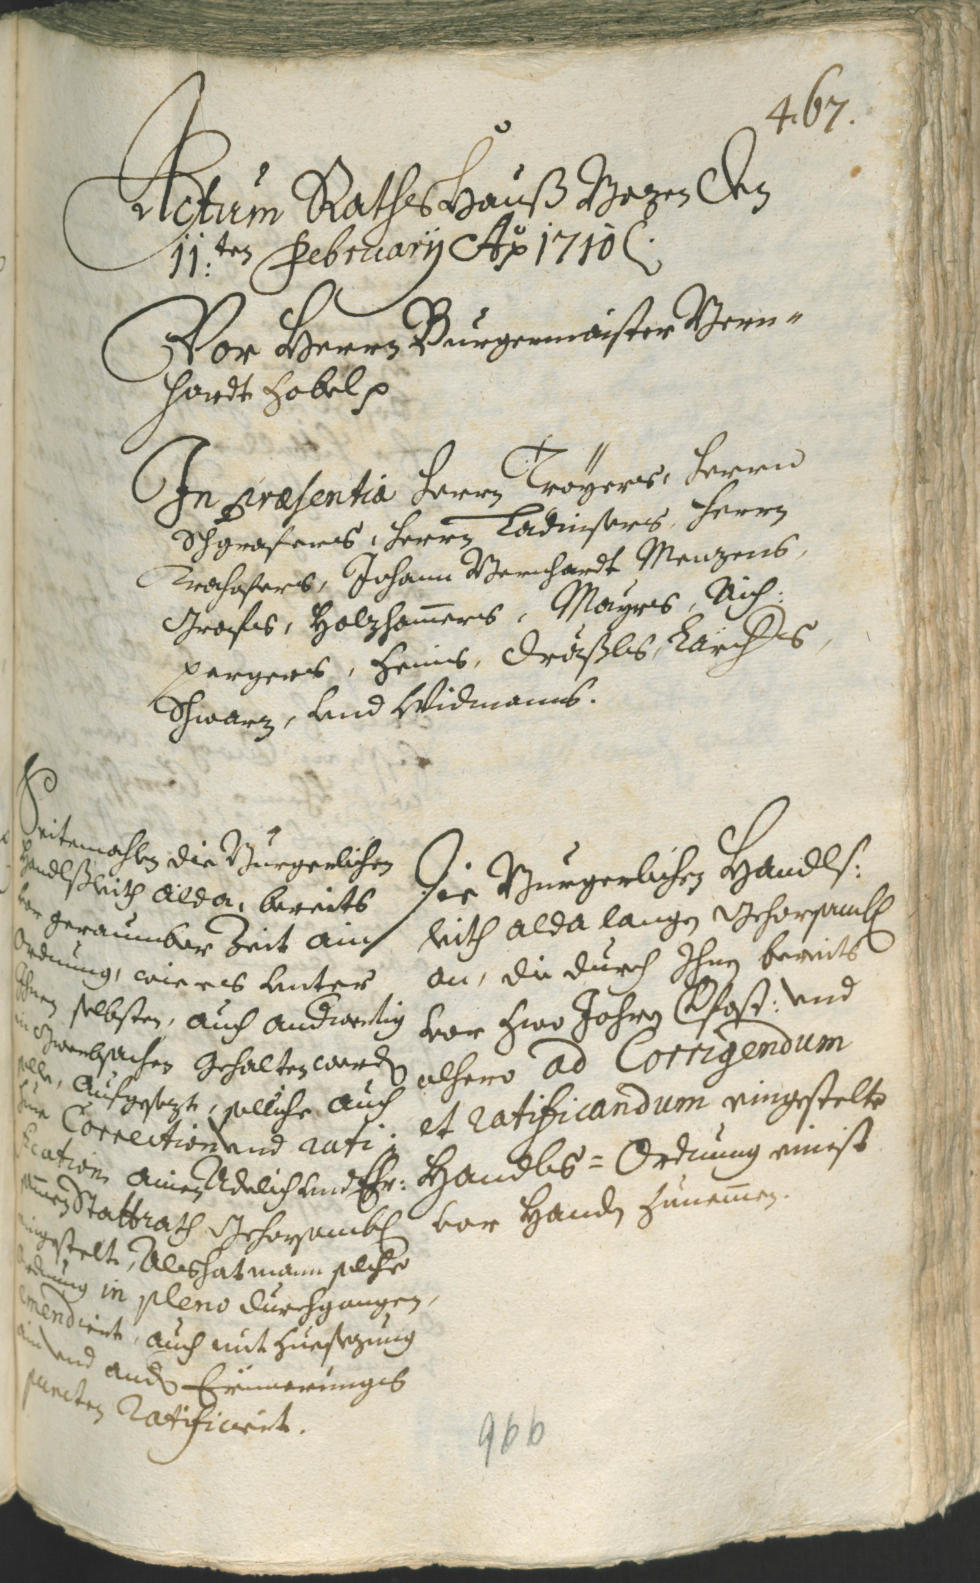 467.
Actum RathsHauß Bozen den
11:ten February Ao 1710
Vor Herrn Burgermaister Bern=
hardt Hobel
In præsentia Herrn Troyers, Herrn
Schgrafers, Herrn Ladinsers, Herrn
Johann Bernhardt Menzens,
Grafs, Holzhamers, Mayrs, Aich:
pergers, Heins, Dräxls,
Schwarz, und Widmanns.
Seitemahlen die Burgerlichen
Handlsleith alda, bereits
vor geraumber Zeit ain
Ordnung, wie es unter
Ihnen selbsten, auch andwertig
in gehalten werden
solle, aufgesezt, solliche auch
Correction und rati:
fication ainen Adelich und Ehr:
samen Stattrath gehorsambl
eingestelt, Als hat mann solche
Ordnung in pleno durchgangen,
emendiert, auch mit Hinzuesezung
ain und ander Erinnerungs
puncten Ratificiert.
Die Burgerlichen Handls:
leith alda langen gehorsambl
an, die durch Ihnen bereits
vor zwo Jahren und
alhero ad Corrigendum
et ratificandum eingestelte
Handls=Ordnung einist
vor Handen zunemen.
966